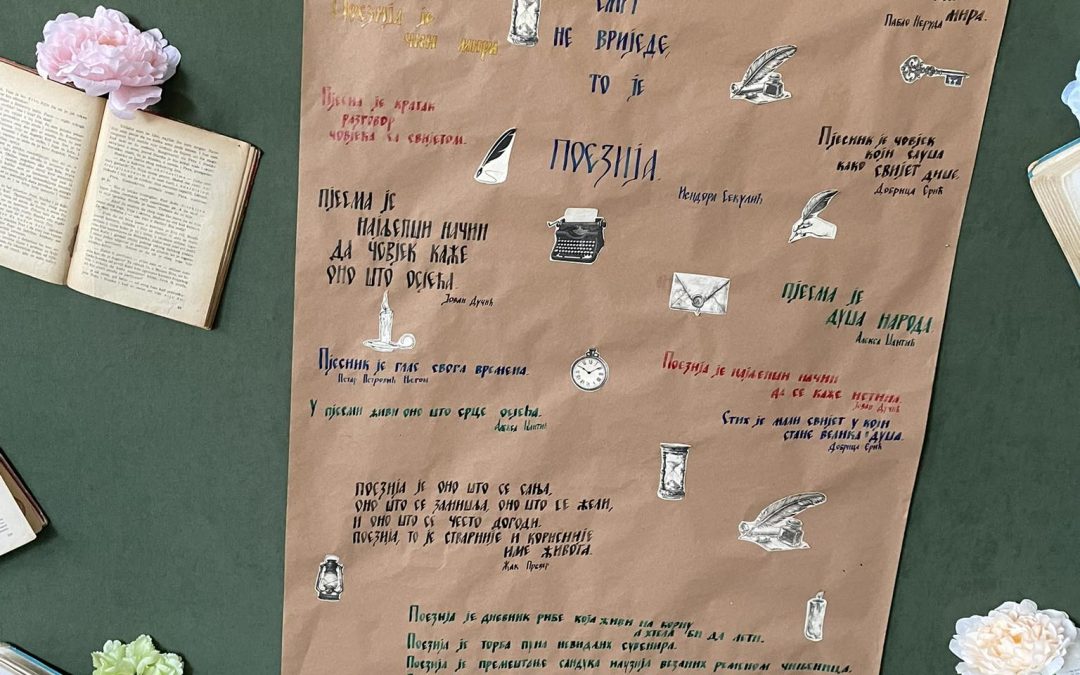 Поезија је
СМРТ
НЕ ВРИЈЕДЕ,
ТО ЈЕ
ПОЕЗИЈА.
Исидора Секулић
мира.
Пабло Неруда
Пјесма је кратак
разговор
човјека са свијетом.
Пјесник је човјек
који слуша
како свијет дише.
Добрица Ерић
Пјесма је
најљепши начин
да човјек каже
оно што осјећа.
Јован Дучић
Пјесма је
душа народа.
Алекса Шантић
Пјесник је глас свога времена.
Петар Петровић Његош
Поезија је најљепши начин
да се каже истина.
Јован Дучић
У пјесми живи оно што срце осјећа.
Алекса Шантић
Стих је мали свијет у који
стане велика душа.
Добрица Ерић
Поезија је оно што се сања,
оно што се замишља, оно што се жели,
и оно што се често догоди.
Поезија, то је стварније и корисније
име живота.
Жак Превер
Поезија је дневник рибе која живи на копну
а хтела би да лети.
Поезија је торба пуна невидљивих сувенира.
Поезија је премештање сандука илузија везаних ременом чињеница.